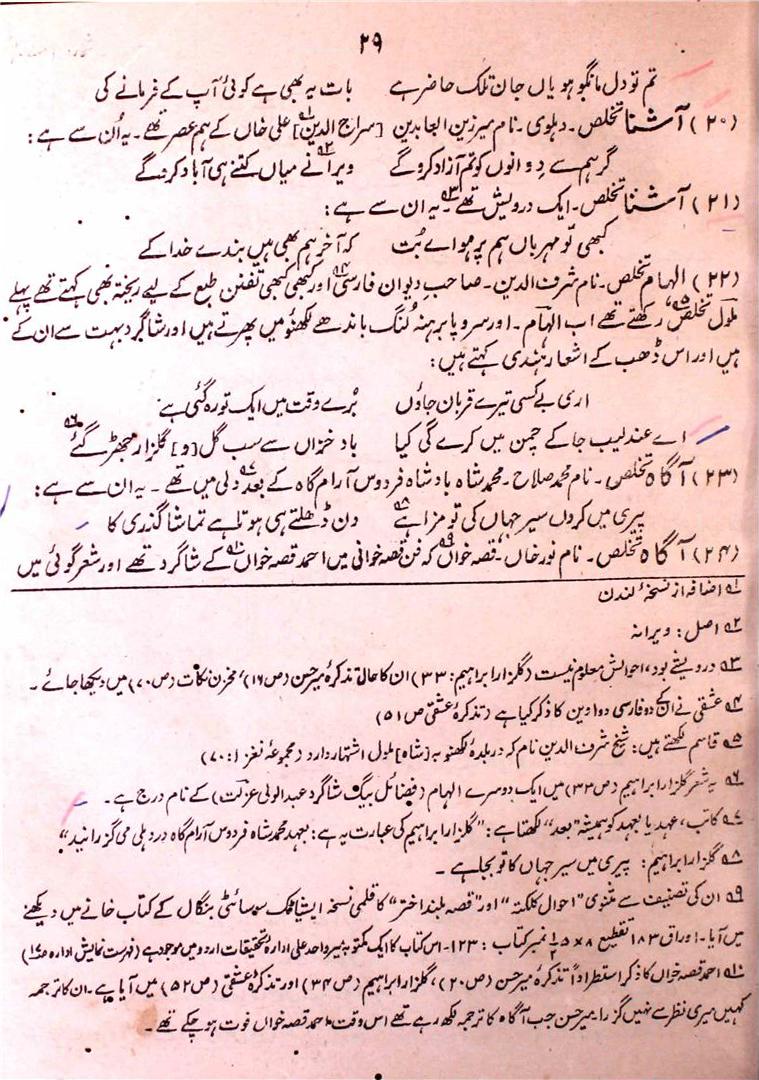 ۲۹
تم تو دل مانگو ہو یاں جان تلک حاضر ہے بات یہ بھی ہے کوئی آپ کے فرمانے کی
(۲۰) آشنا تخلص۔ دہلوی۔ نام میرزین العابدین [سراج الدین]۱؎ علی خاں کے ہم عصر تھے۔ یہ اُن سے ہے:
گر ہم سے دوانوں کو تم آزاد کرو گے ویرانے۲؎ میاں کتنے ہی آباد کرو گے
(۲۱) آشنا تخلص۔ ایک درویش تھے۳؎ یہ ان سے ہے:
کبھی تو مہرباں ہم پر ہو اے بُت کہ آخر ہم بھی ہیں بندے خدا کے
(۲۲) الہام تخلص۔ نام شرف الدین۔ صاحبِ دیوان فارسی۴؎ اور کبھی کبھی تفنن طبع کے لیے ریختہ بھی کہتے تھے پہلے
ملول تخلص۵؎ رکھتے تھے اب الہام۔ اور سر و پا برہنہ لنگ باندھے لکھنؤ میں پھرتے ہیں اور شاگرد بہت سے ان کے
ہیں اور اس ڈھب کے اشعار ہندی کہتے ہیں:
اری بے کسی تیرے قربان جاؤں بُرے وقت میں ایک تو رہ گئی ہے
اے عندلیب جا کے چمن میں کرے گی کیا باد خزاں سے سب گل [و] گلزار جھڑ گئے۶؎
(۲۳) آگاہ تخلص۔ نام محمد صلاح۔ محمد شاہ بادشاہ فردوس آرام گاہ کے بعد۷؎ دلی میں تھے۔ یہ ان سے ہے:
پیری میں کر دں سیر جہاں کی تو مزا ہے۸؎ دن ڈھلتے ہی ہوتا ہے تماشا گذری کا
(۲۴) آگاہ تخلص۔ نام نور خاں۔ قصہ خواں۹؎ کہ فن قصہ خوانی میں احمد قصہ خواں۱۰؎ کے شاگرد تھے اور شعر گوئی میں
۱؎ اضافہ از نسخۂ لندن
۲؎ اصل: ویرانہ
۳؎ درویشے بود، احوالش معلوم نیست (گلزار ابراہیم: ۳۳) ان کا حال تذکرۂ میر حسن (ص ۱۶)، مخزن نکات (ص ۷۰) میں دیکھا جائے۔
۴؎ عشقی نے ان کے دو فارسی دواوین کا ذکر کیا ہے (تذکرۂ عشقی ص ۵۱)
۵؎ قاسم لکھتے ہیں: شیخ شرف الدین نام کہ در بلدۂ لکھنو بہ [شاہ] ملول اشتہار دارد (مجموعہ نغز ۱: ۷۰)
۶؎ یہ شعر گلزار ابراہیم (ص ۳۲) میں ایک دوسرے الہام (فضائل بیگ شاگرد عبدالولی عزلت) کے نام درج ہے۔
۷؎ کاتب، عہد یا بعہد کو ہمیشہ "بعد" لکھتا ہے: "گلزار ابراہیم کی عبارت یہ ہے: بعہد محمد شاہ فردوس آرام گاہ در دہلی می گزرانید"
۸؎ گلزار ابراہیم: پیری میں سیر جہاں کا تو بجا ہے۔
۹؎ ان کی تصنیف سے مثنوی "احوال کلکتہ" اور "قصہ بلند اختر" کا قلمی نسخہ ایشیاٹک سوسائٹی بنگال کے کتاب خانے میں دیکھنے
میں آیا۔ اوراق ۱۸۳ تقطیع ۸ × ۵ ۱/۲ نمبر کتاب: ۱۲۳۔ اس کتاب کا ایک مکتوبہ پیر واحد علی ادارہ تحقیقات اردو میں موجود ہے (فہرست نمایش ادارہ ص ۱۷)
۱۰؎ احمد قصہ خواں کا ذکر استطراداً تذکرۂ میر حسن (ص ۲۰)، گلزار ابراہیم (ص ۳۴) اور تذکرۂ عشقی (ص ۵۲) میں آیا ہے۔ ان کا ترجمہ
کہیں میری نظر سے نہیں گزرا۔ میر حسن جب آگاہ کا ترجمہ لکھ رہے تھے اس وقت احمد قصہ خواں فوت ہو چکے تھے۔